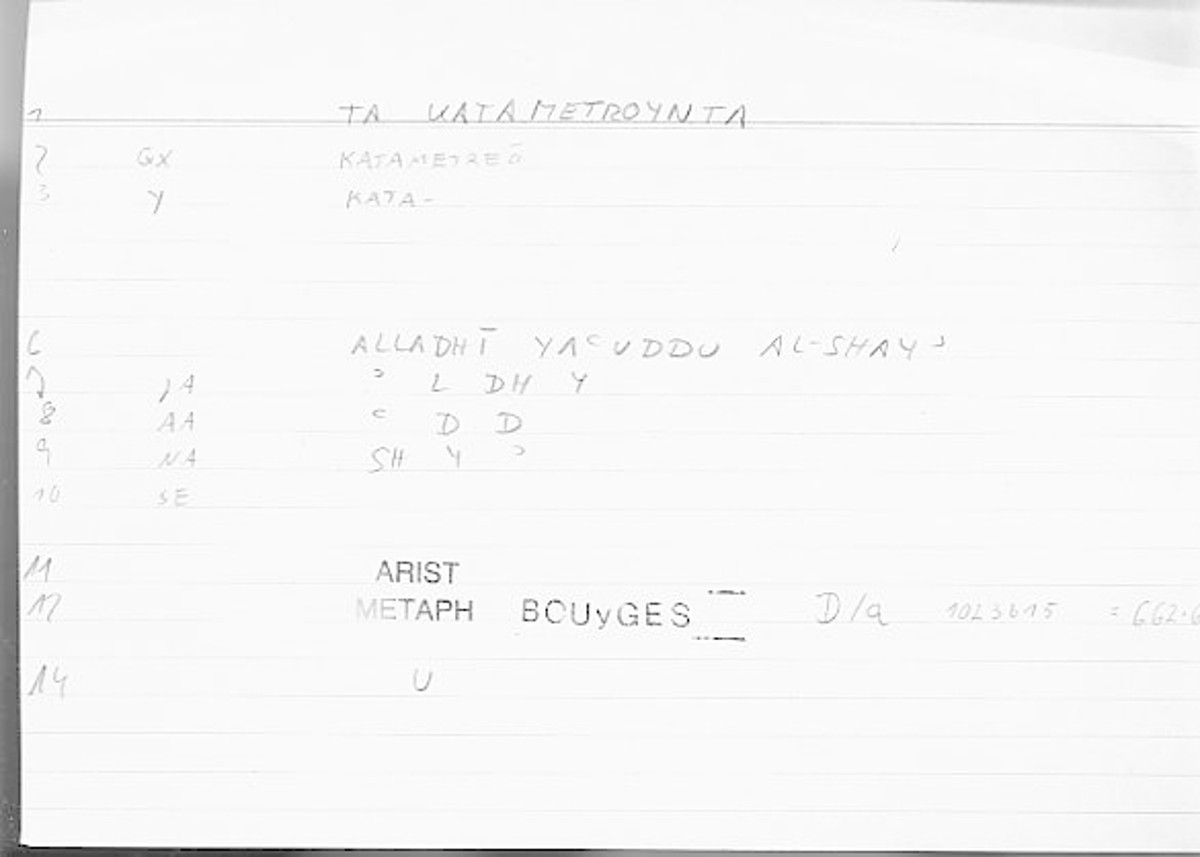 1 TA KATAMETROYNTA
2 GX KATAMETREŌ
3 Y KATA-
6 ALLADHĪ YAʿUDDU AL-SHAYʾ
7 JA ʾ L DH Y
8 AA ʿ D D
9 NA SH Y ʾ
10 SE
11 ARIST
12 METAPH BOUyGES D/a 1023b15 = 662.6
14 U